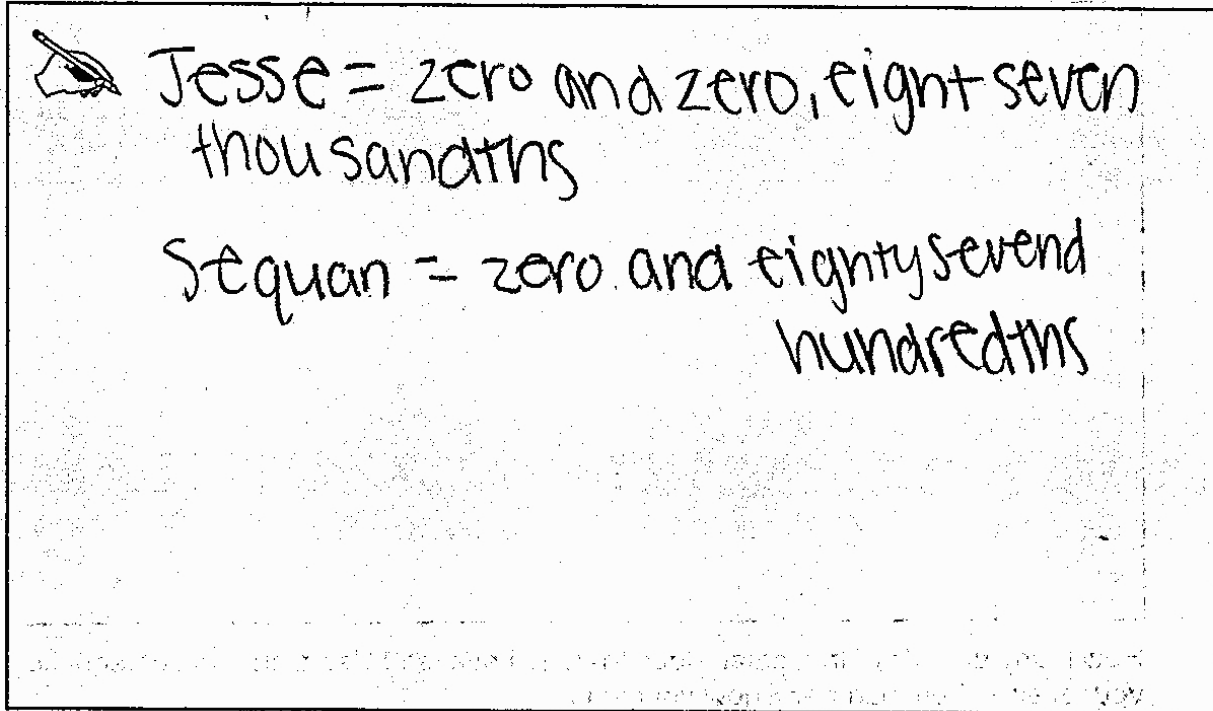 Jesse = zero and zero, eight seven
thousandths
Sequan = zero and eighty sevend
hundredths